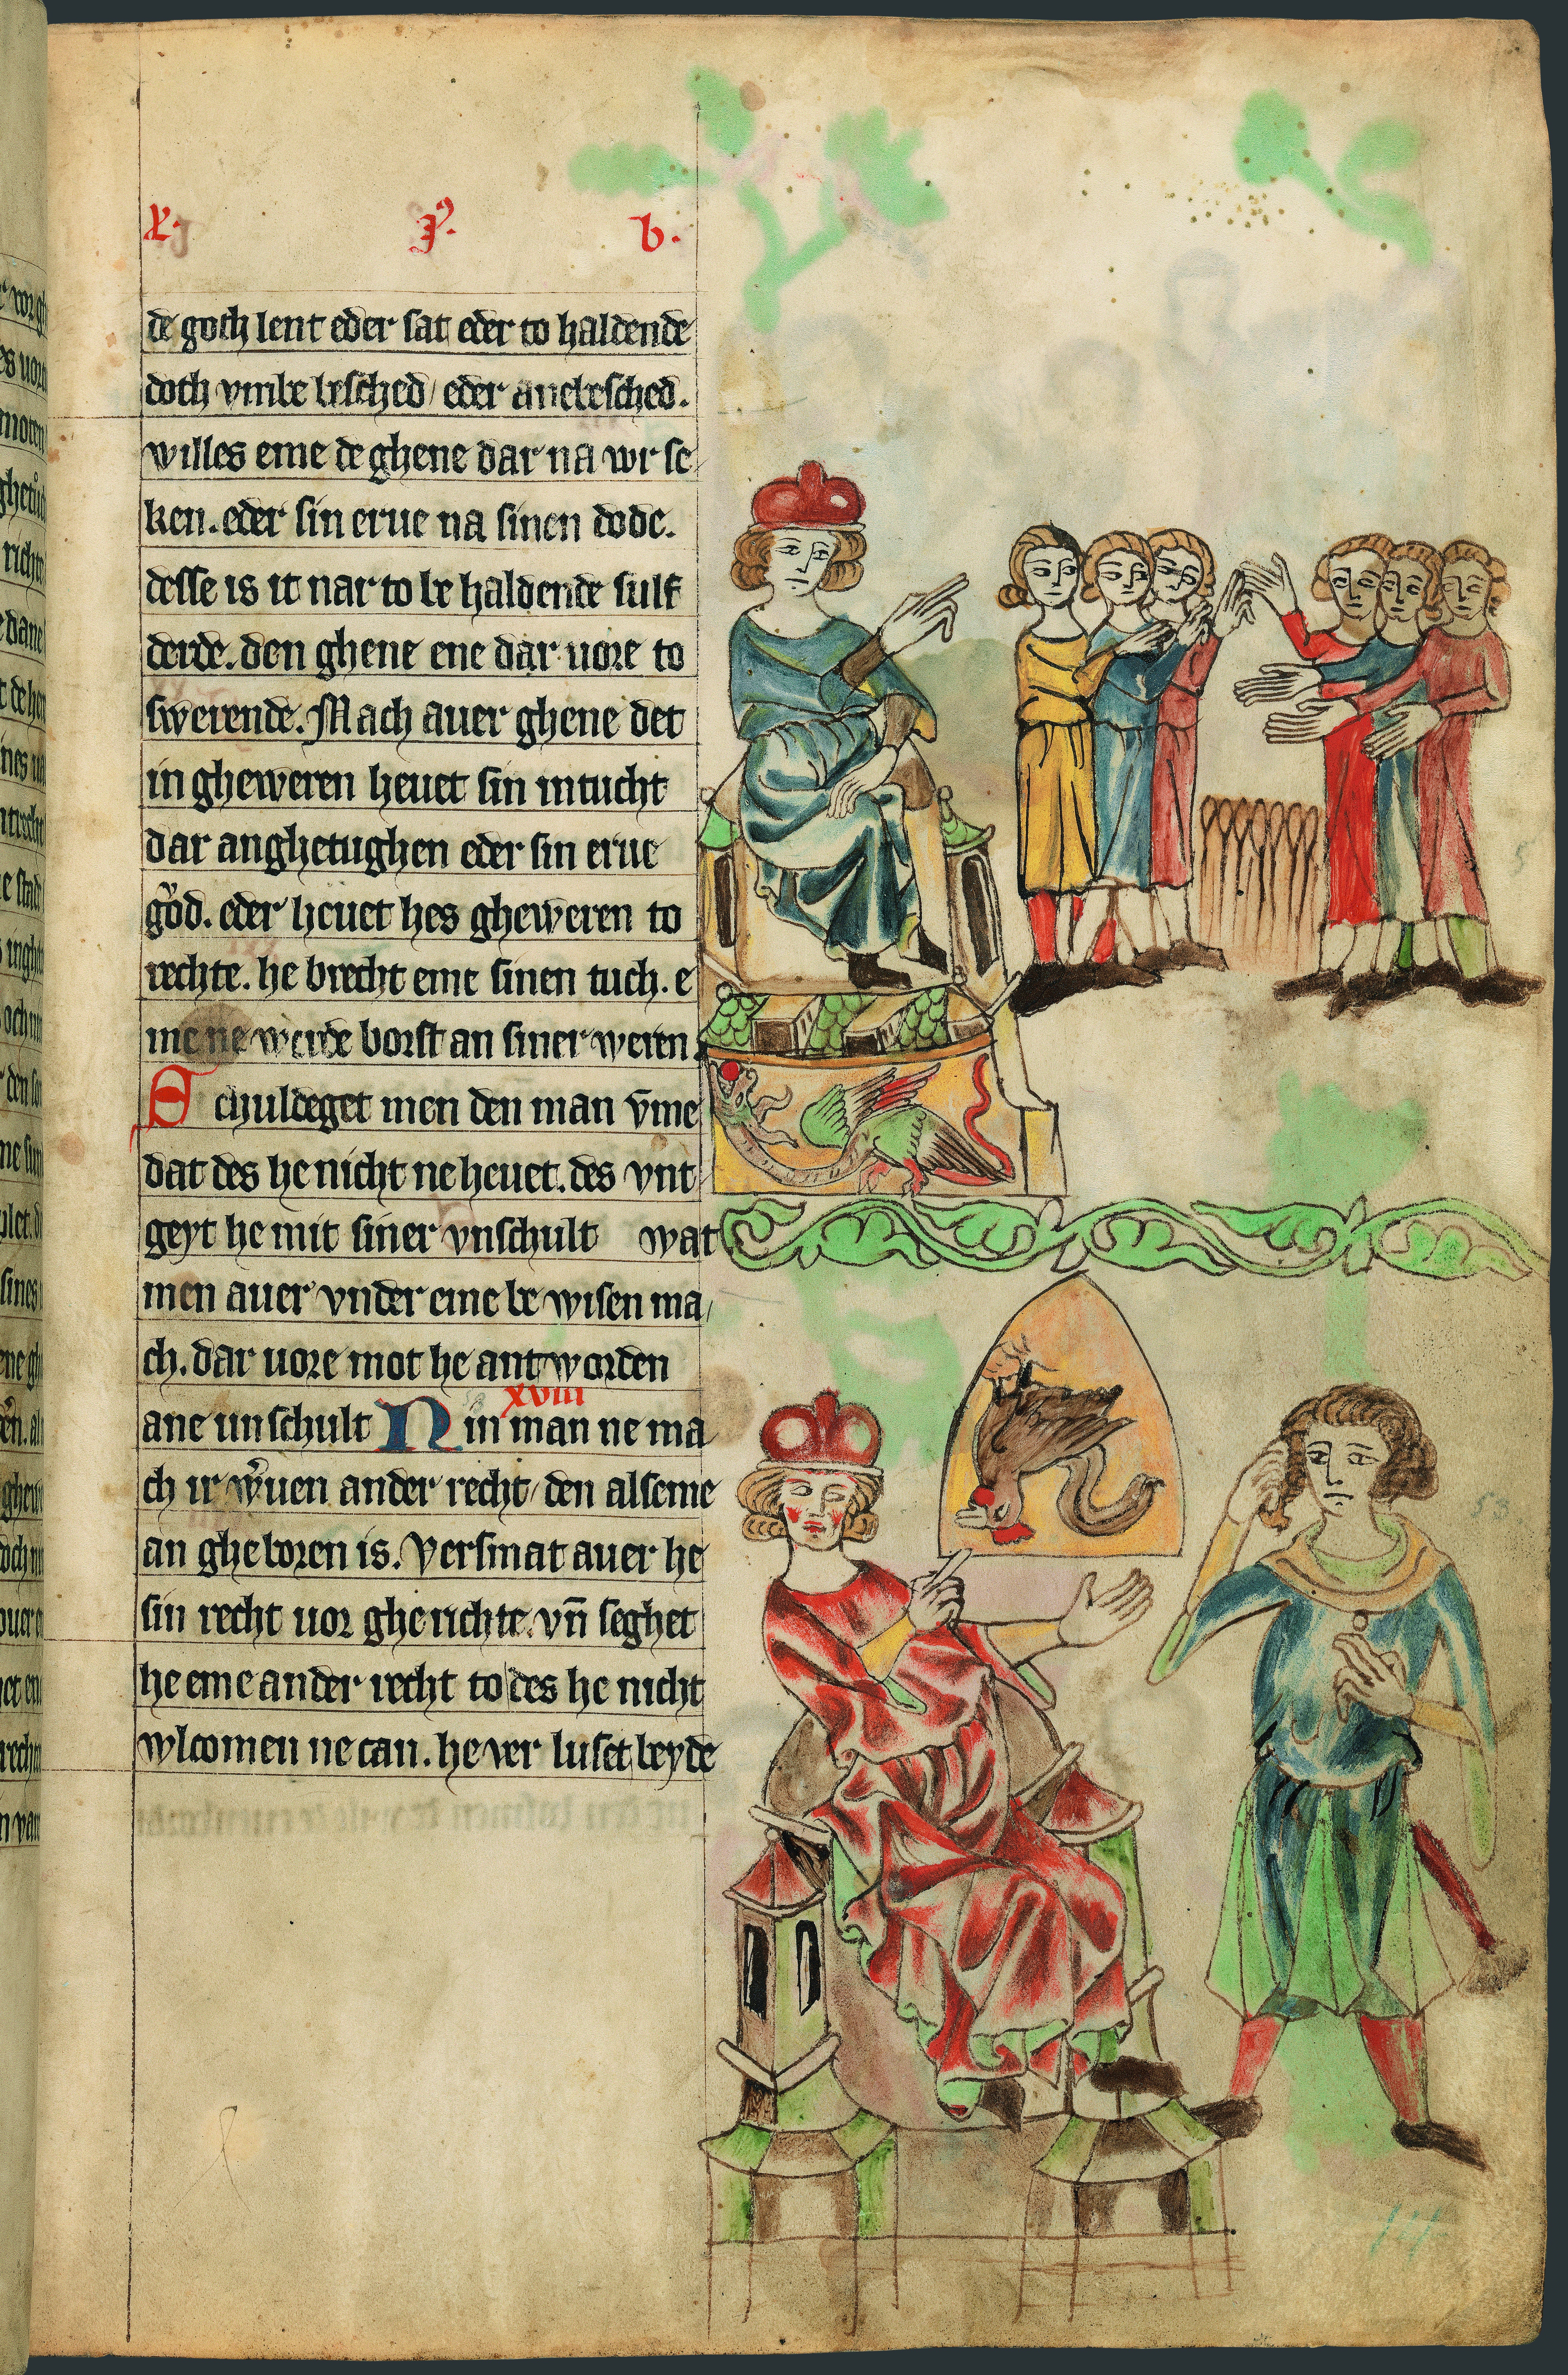 x. j⁹. b.
de goth lent eder sat eder to haldende
doth vmbe besched / eder anebesched.
willes eme de ghene dar na wrse
ken. eder sin erue na sinen dode.
desse is it nar to be haldende sulf
derde. den ghene ene dar uore to
swerende. Mach auer ghene det
in gheweren heuet sin intucht
dar anghetughen eder sin erue
gͦod. eder heuet hes gheweren to
rechte. he brecht eme sinen tuch. e
me ne werde borst an siner weren
Schuldeget men den man vͦme
dat des he nicht ne heuet. des vnt
geyt he mit siner vnschult wat
men auer vnder eme be wisen ma/
ch. dar uore mot he antworden
xviii
ane unschult Nin man ne ma
ch ir wͦuen ander recht / den alseme
an gheboren is. Versmat auer he
sin recht uor gherichte. vn̄ seghet
he eme ander recht to des he nicht
wlcomen ne can. he ver luset beyde